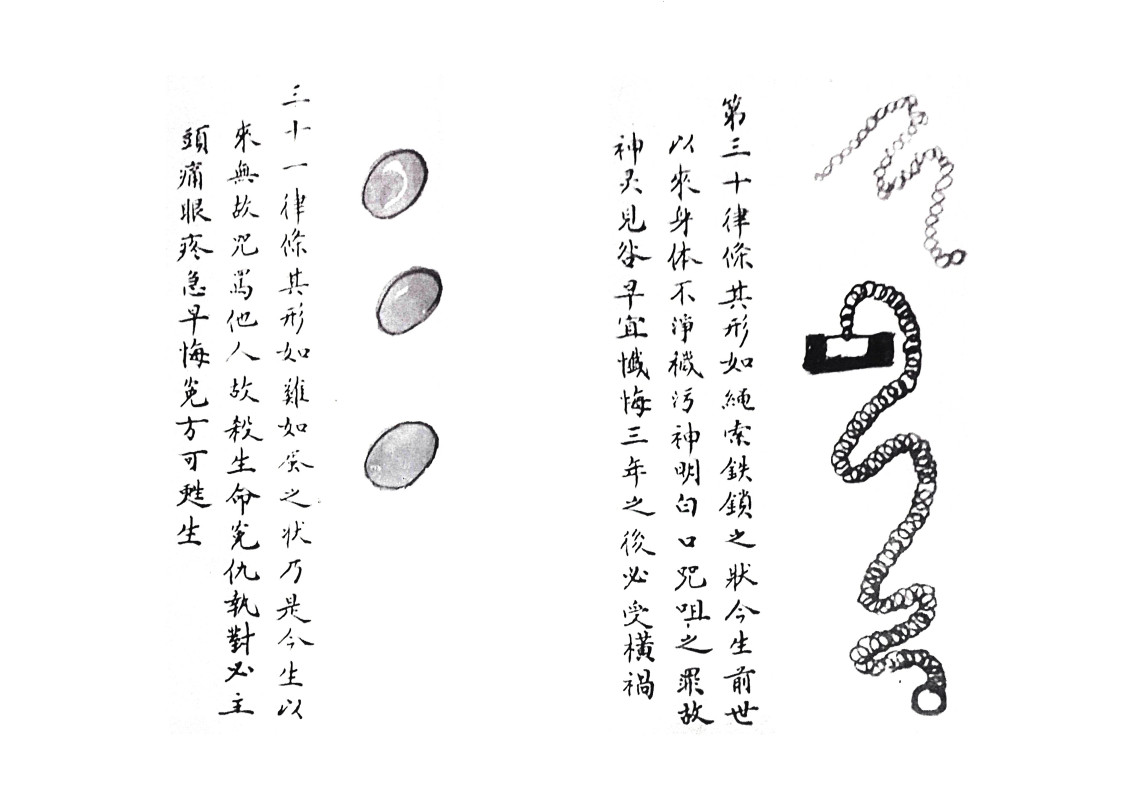 第三十律條其形如繩索鉄鎖之狀今生前世
以來身体不淨穢污神明白口咒咀之罪故
神灵見咎早宜懺悔三年之後必受橫禍
三十一律條其形如雞如蛋之状乃是今生以
來無故咒罵他人故殺生命冤仇執對必主
頭痛眼疼急早悔冤方可甦生